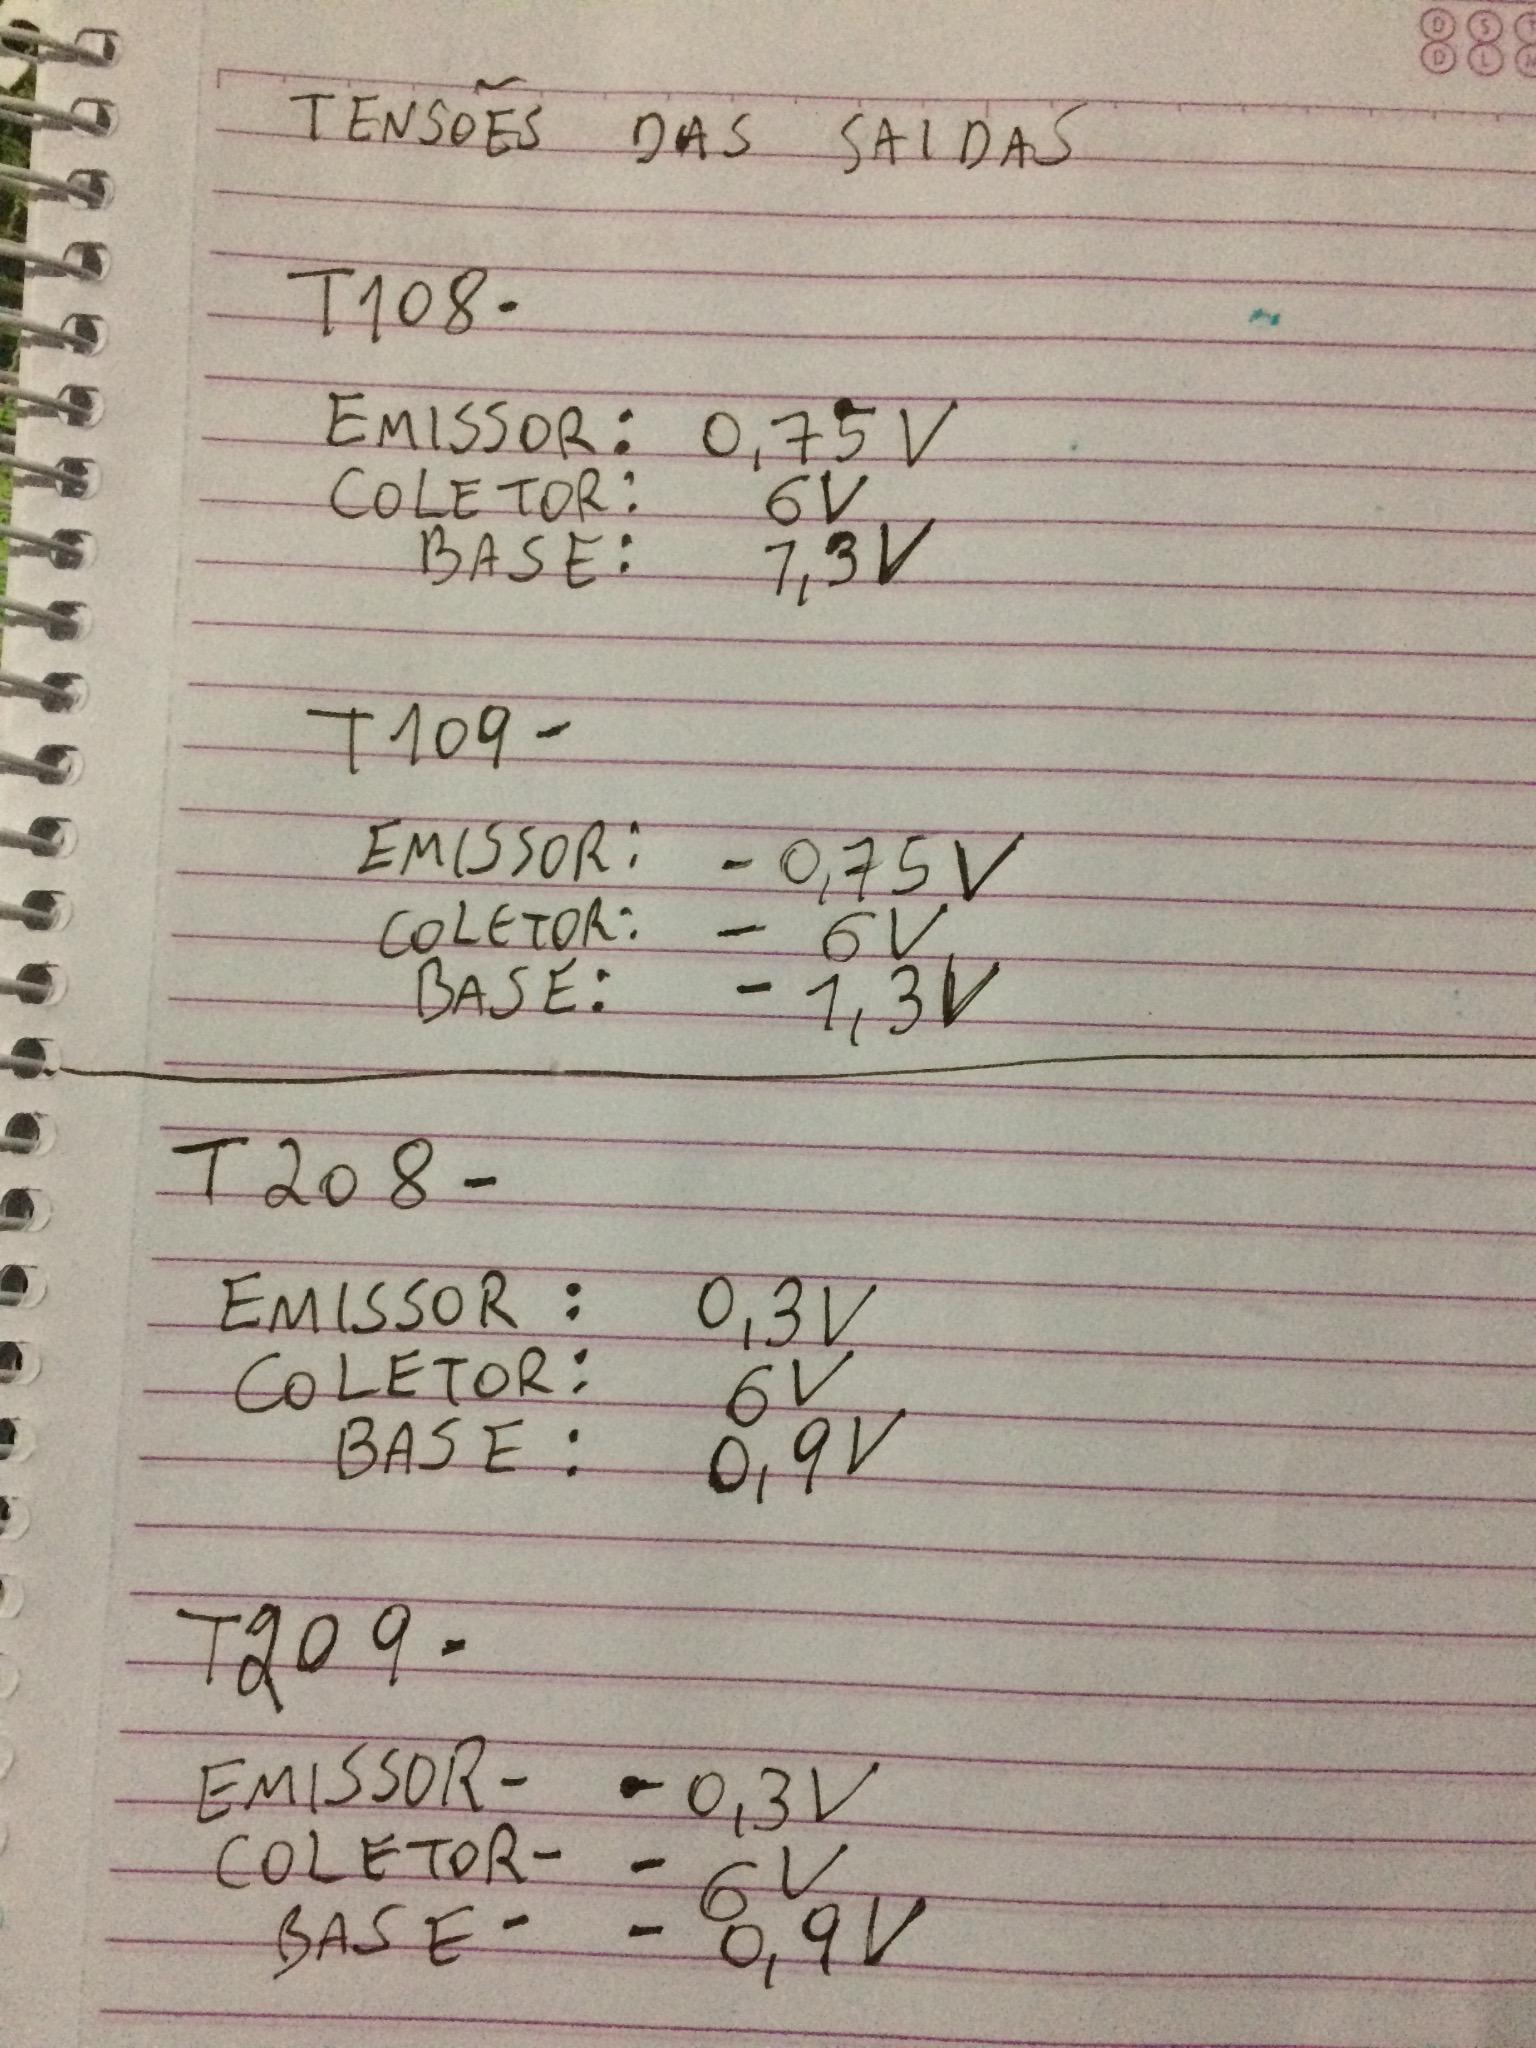 D S T
D L M
TENSOẼS DAS SAIDAS
T108-
EMISSOR: 0,75V
COLETOR: 6V
BASE: 1,3V
T109-
EMISSOR: -0,75V
COLETOR: - 6V
BASE: -1,3V
T208-
EMISSOR: 0,3V
COLETOR: 6V
BASE: 0,9V
T209-
EMISSOR- -0,3V
COLETOR- - 6V
BASE- - 0,9V